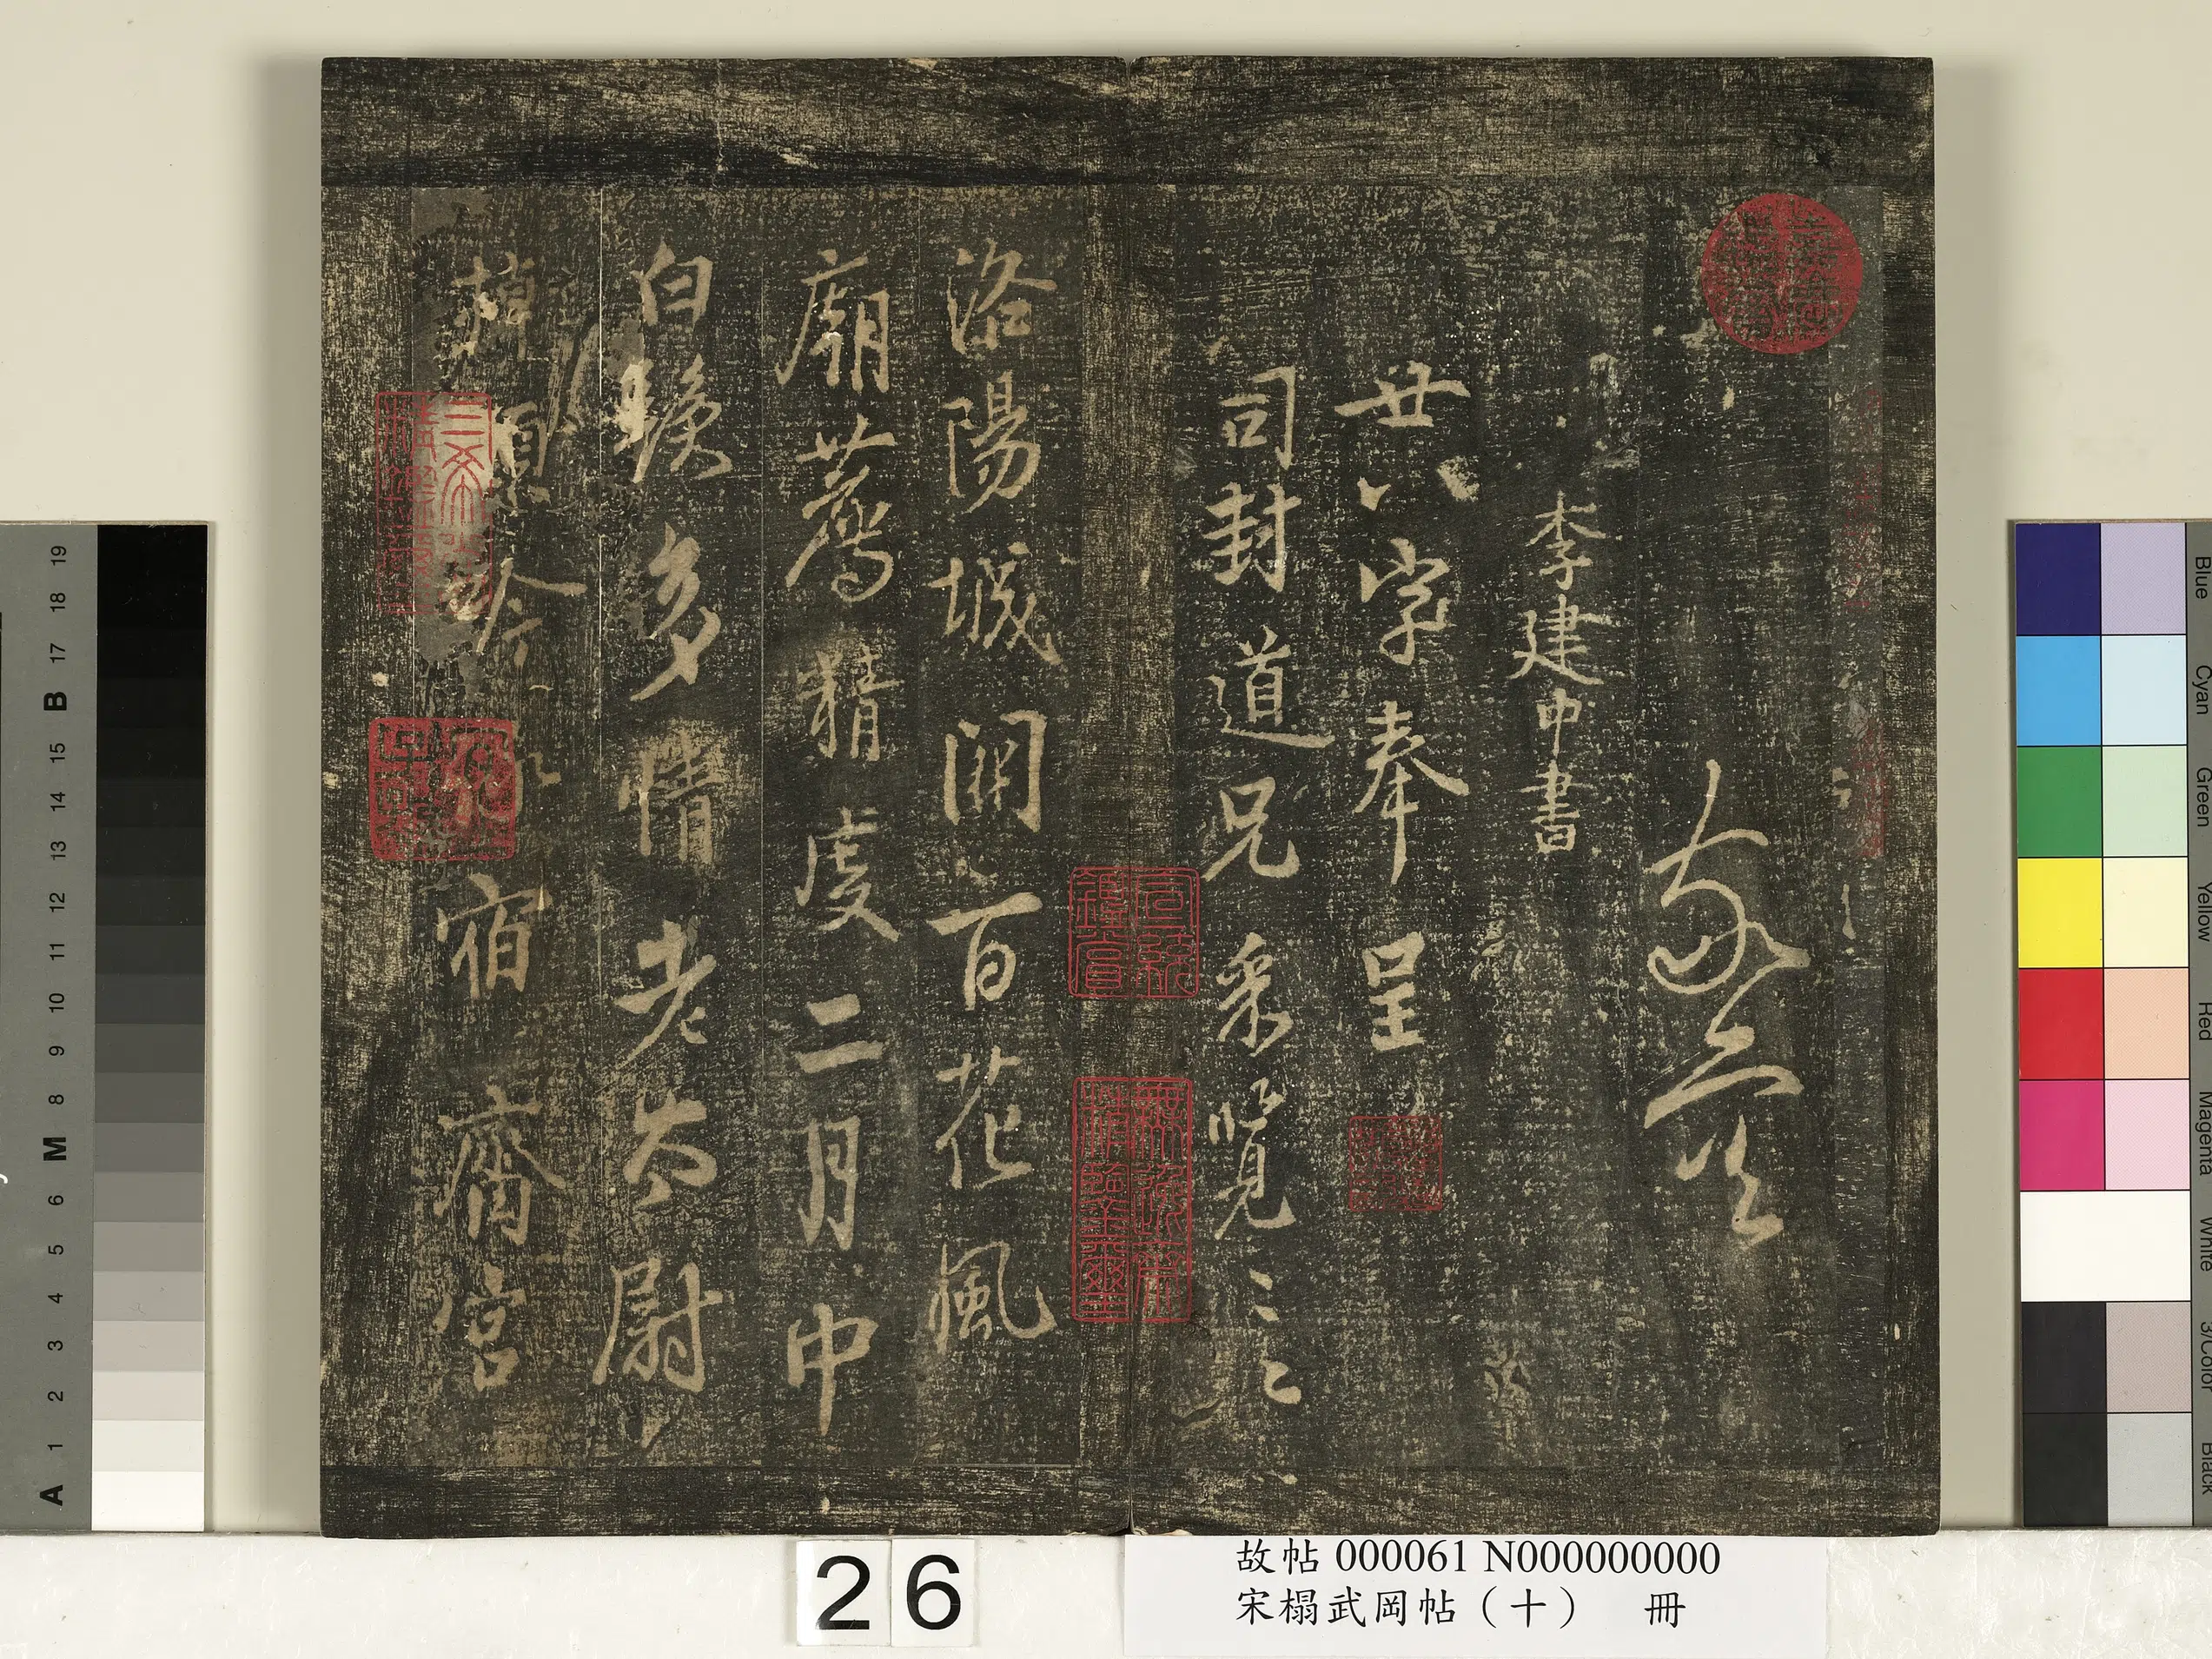 李建中書
廿八字奉呈
司封道兄采覽
洛陽城闕百花風
廟薦精虔二月中
白髮多情老太尉
掉頭吟
宿齋宮
三希堂精鑑璽
宜子孫
26
故帖 000061 N000000000
宋榻武岡帖（十） 冊
A 1 2 3 4 5 6 M 8 9 10 11 12 13 14 15 B 17 18 19
Blue
Cyan
Green
Yellow
Red
Magenta
White
3/Color
Black